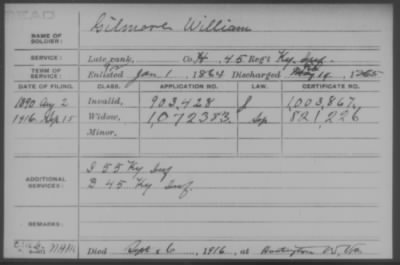 Gilmore William
NAME OF
SOLDIER:
SERVICE:
Late rank, Co. H, 45 Reg't Ky. Inf.
TERM OF
SERVICE:
Enlisted Jan. 1, 1864 Discharged Feb 14, 1865
DATE OF FILING. CLASS. APPLICATION NO. CERTIFICATE NO.
1890 Aug 2 Invalid, 903,428 J 1,003,867
1916 Sep 15 Widow, 1,072383 821,226
Minor,
ADDITIONAL
SERVICES:
I 55 Ky Inf
D 45 Ky Inf.
REMARKS:
Died Sept 6, 1916, at Huntington W. Va.